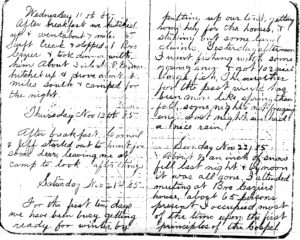 Wednesday 11th 85
After breakfast we hitched
up & went about 7 mile to
Salt Creek & stopped at Bro
& took dinner with
him About 3 o'clock P.M. we
hitched up & drove about 4
miles south & camped for
the night.
Thursday Nov 12th 85
After breakfast
& Jeff started out to hunt for
some deer leaving me at
camp to look after things
Saturday Nov 21st 85
For the past ten days
we have been busy getting
ready for winter by
putting up our tent, getting
some hay for the horses, &
Yesterday afternoon
I went fishing with some
young men & got
fish, The weather
for the past week has
been more like spring than
fall, some nights
Last night we had
a nice rain,
Sunday Nov 22/85
About an inch of snow
fell last night & by noon
it was all gone, I attended
meeting at Bro
house, about 65 persons
present & I occupied most
of the time upon the first
principles of the Gospel